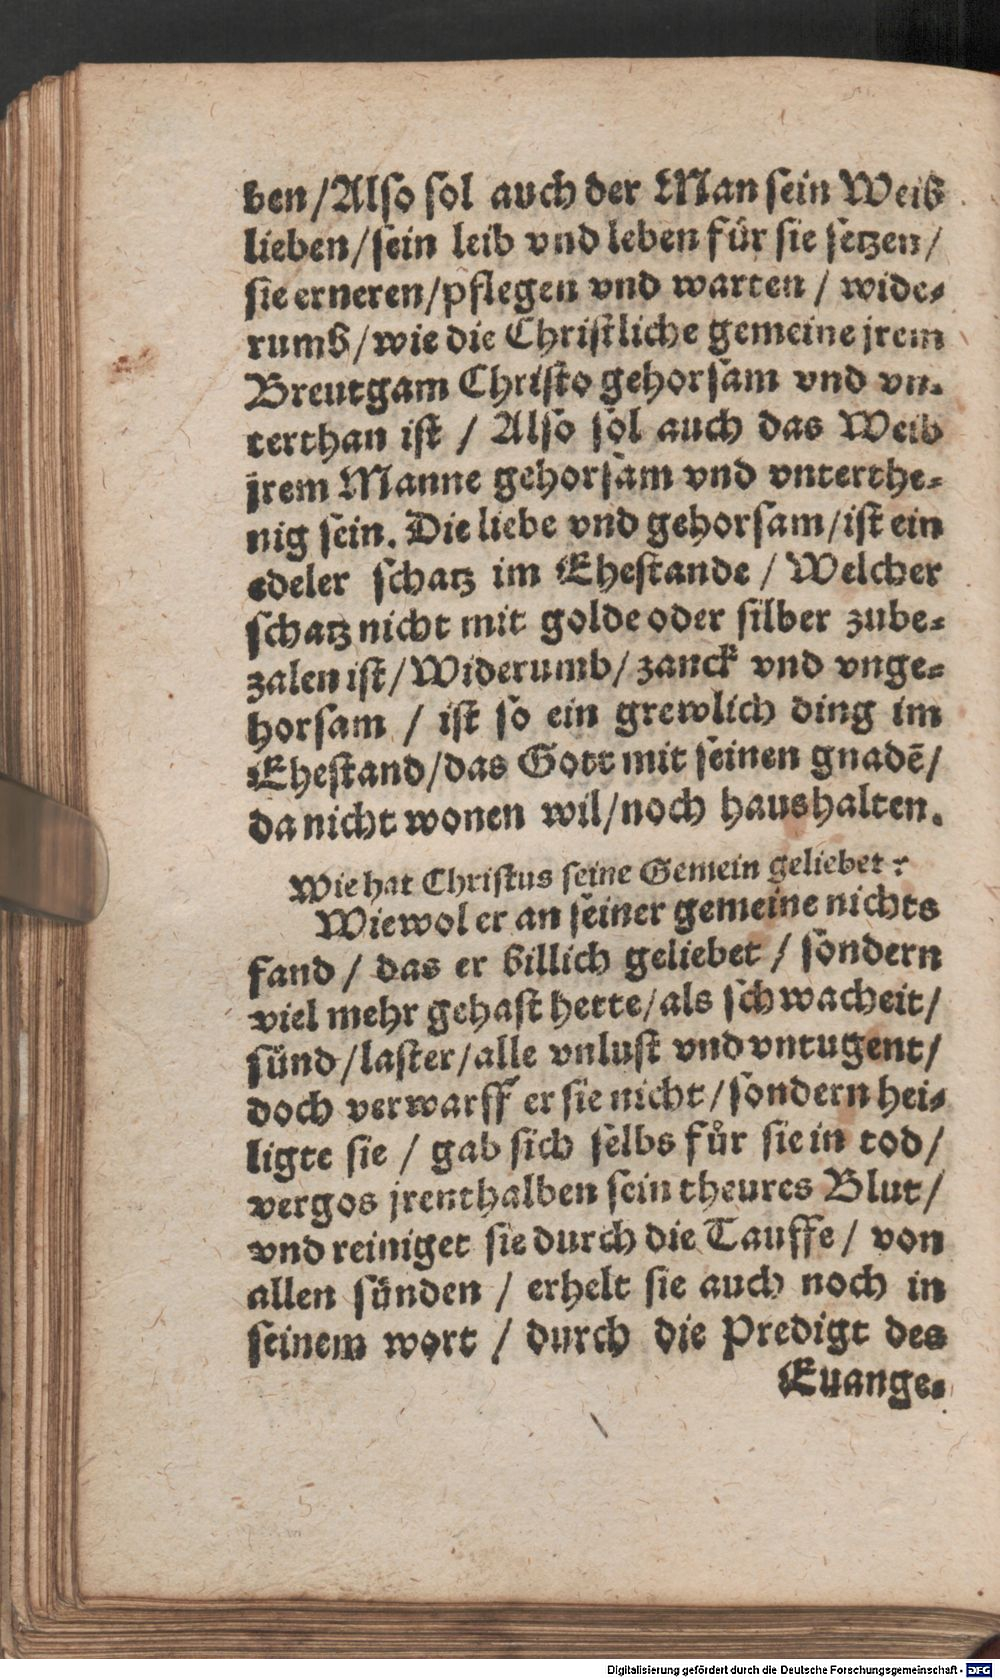 ben / Also sol auch der Man sein Weib
lieben / sein leib vnd leben für sie setzen /
sie erneren / pflegen vnd warten / wide-
rumb / wie die Christliche gemeine jrem
Breutgam Christo gehorsam vnd vn-
terthan ist / Also sol auch das Weib
jrem Manne gehorsam vnd vnterthe-
nig sein. Die liebe vnd gehorsam / ist ein
edeler schatz im Ehestande / Welcher
schatz nicht mit golde oder silber zube-
zalen ist / Widerumb / zanck vnd vnge-
horsam / ist so ein grewlich ding im
Ehestand / das Gott mit seinen gnadē /
da nicht wonen wil / noch haushalten.
Wie hat Christus seine Gemein geliebet?
Wiewol er an seiner gemeine nichts
fand / das er billich geliebet / sondern
viel mehr gehast hette / als schwacheit /
sünd / laster / alle vnlust vnd vntugent /
doch verwarff er sie nicht / sondern hei-
ligte sie / gab sich selbs für sie in tod /
vergos jrenthalben sein theures Blut /
vnd reiniget sie durch die Tauffe / von
allen sünden / erhelt sie auch noch in
seinem wort / durch die Predigt des
Euange-
Digitalisierung gefördert durch die Deutsche Forschungsgemeinschaft - DFG